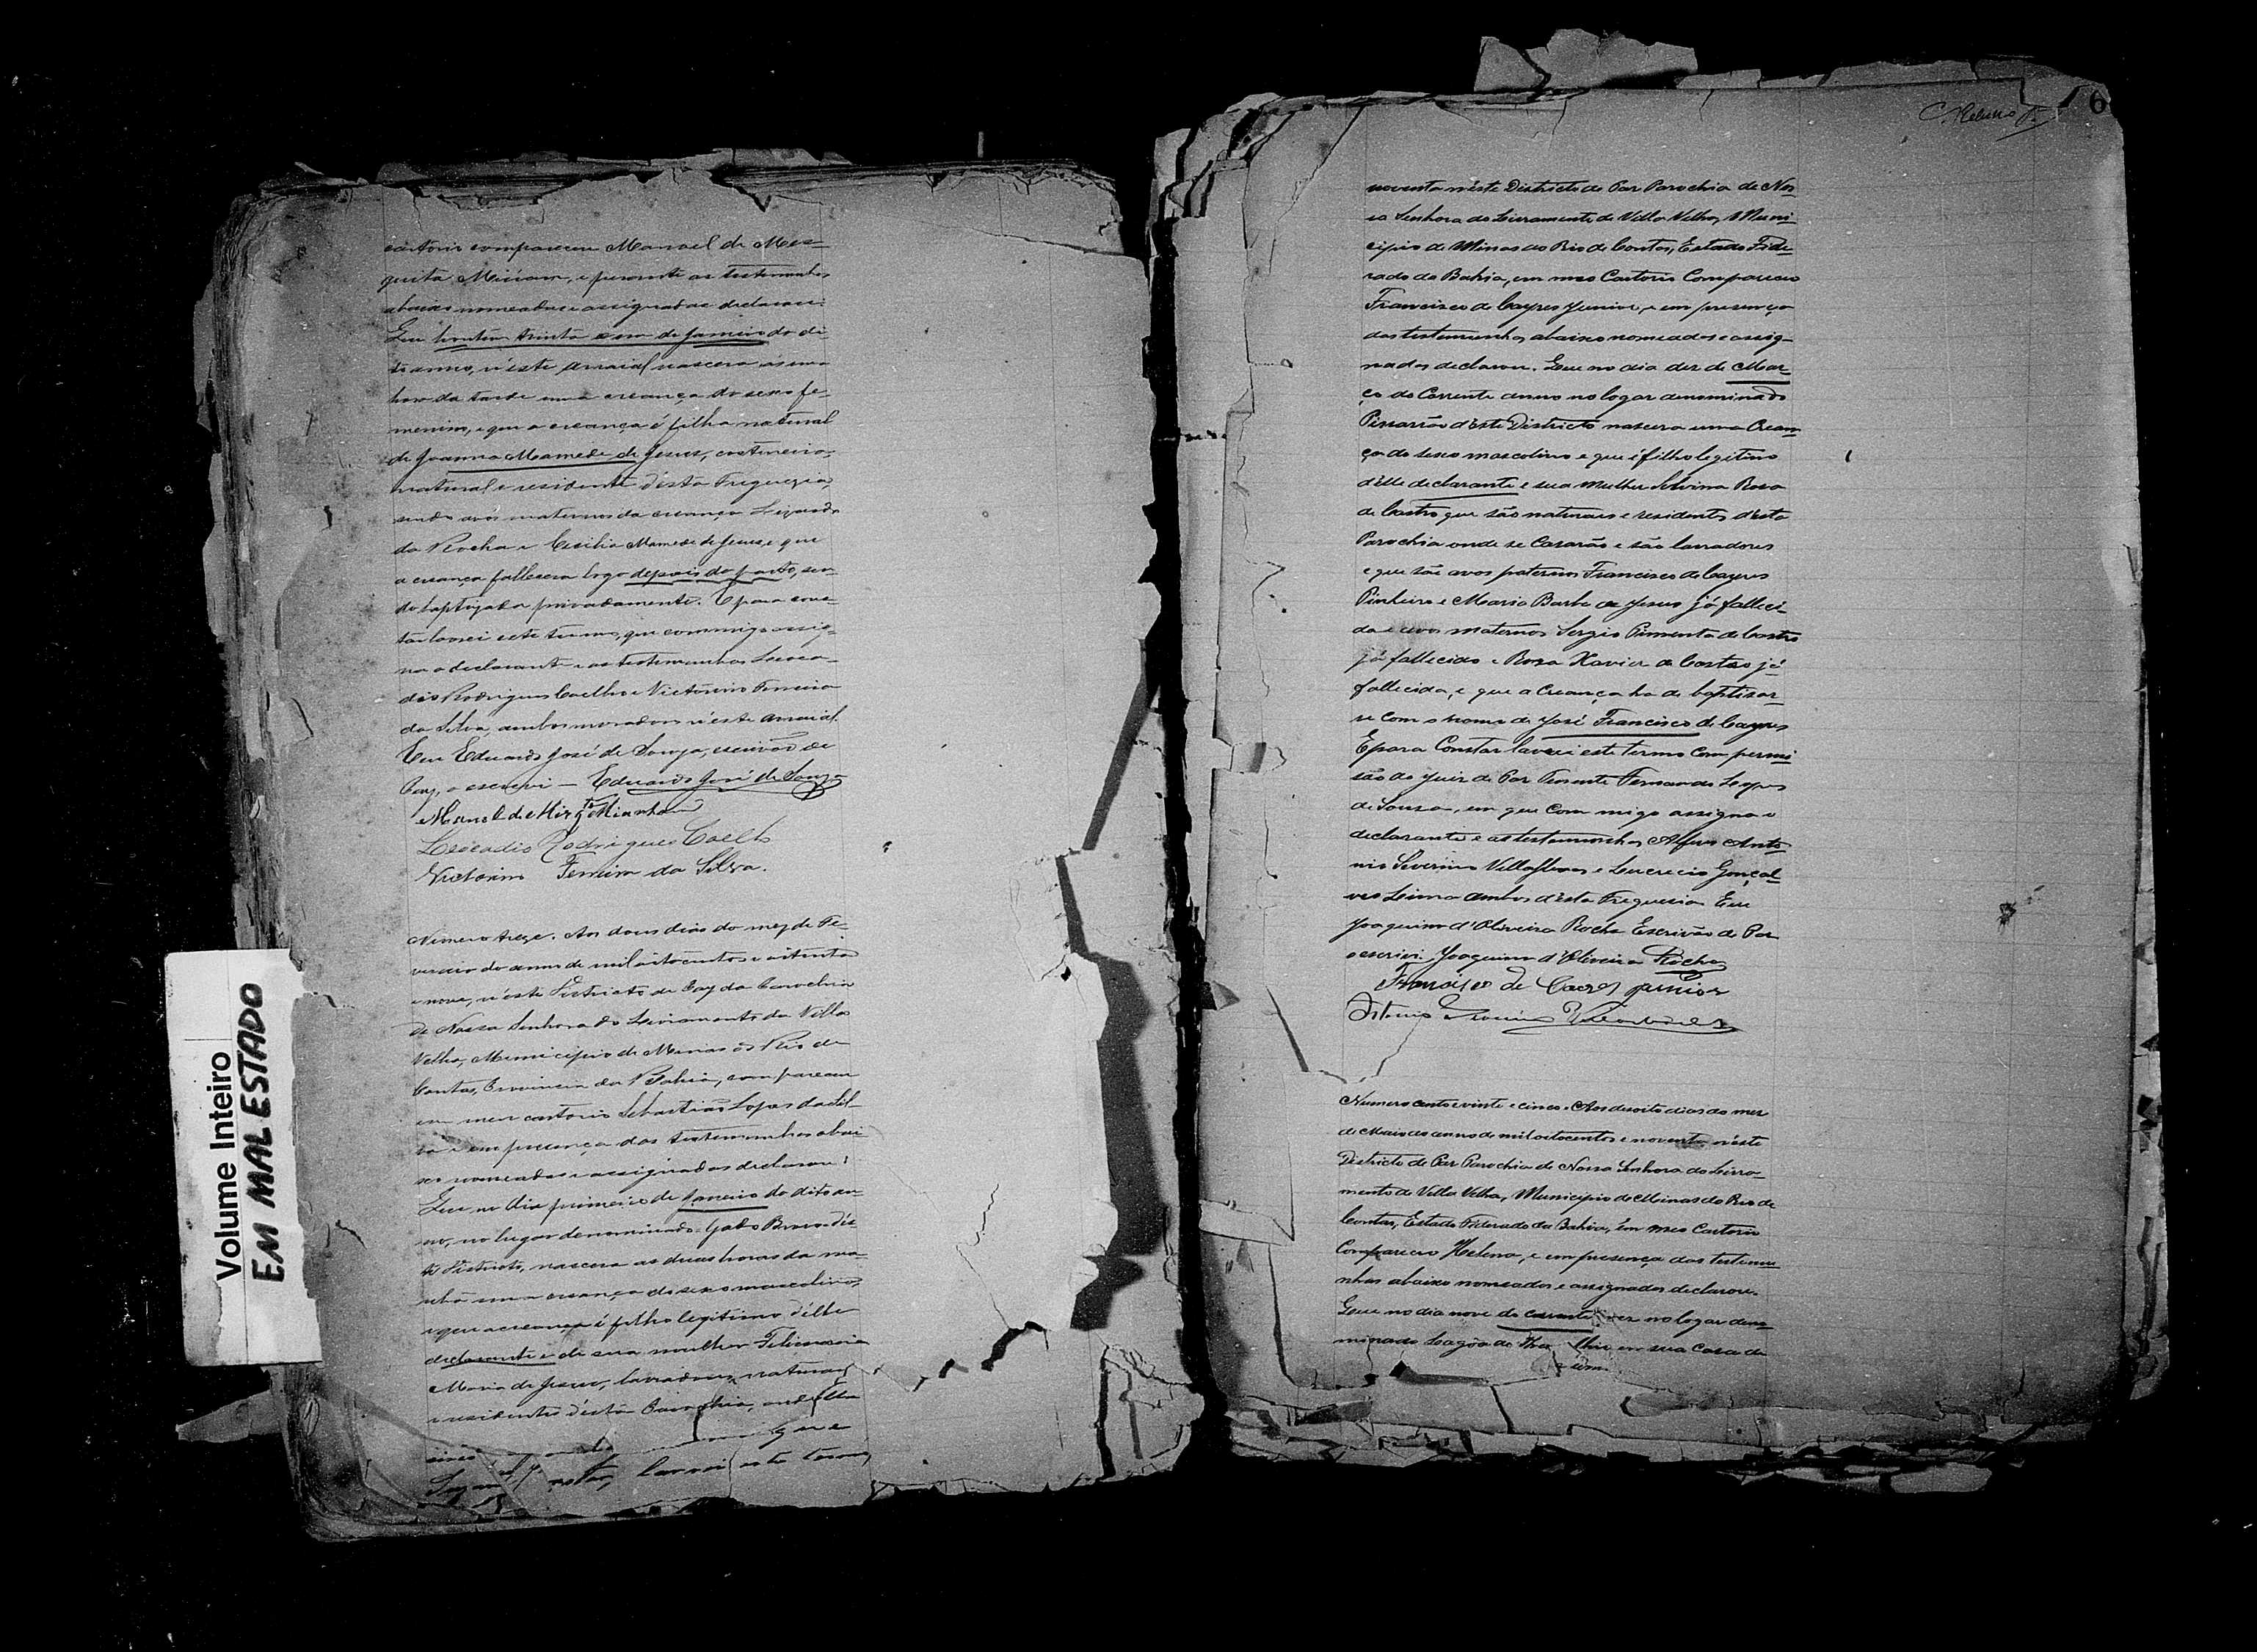 cartorio compareceu Manoel de Mes=
quita, e perante as testemunhas
abaixo nomeadas e assignadas declarou:
Que hontem trinta e um de Janeiro do di-
to anno, n'éste Arraial nascera ás uma
hora da tarde uma creança do sexo fe-
menino, e que a creança é filha natural
de Joanna Mamede de Jesus, costureira
natural e residente d'ésta Freguezia,
sendo avós maternos da creança
da Rocha e Cecilia Mamede de Jesus, e que
a creança fallecera logo depois do parto, sen-
do baptizada privadamente. E para cons-
tar lavrei este termo, que commigo assig-
na o declarante e as testemunhas Leoca-
dio Rodrigues Coelho e Victorino Ferreira
da Silva, ambos moradores n'éste Arraial.
Eu Eduardo José de Souza, escrivão de
Paz, o escrevi — Eduardo José de Souza
Manoel de
Leocadio Rodrigues Coelho
Victorino Ferreira da Silva.
Numero treze. Aos dous dias do mez de Fe-
vereiro do anno de mil oitocentos e oitenta
e nove, n'éste Districto de Paz da Parochia
de Nossa Senhora do Livramento da Villa
Velha, Municipio de Minas do Rio de
Contas, Provincia da Bahia, compareceu
em meu cartorio Sebastião Lopes da Sil-
va e em presença das testemunhas abai-
xo nomeadas e assignadas declarou:
Que no dia primeiro de Janeiro do dito an-
no, no lugar denominado Gado Bravo d'és-
te Districto, nascera as duas horas da ma-
nhã uma creança do sexo masculino,
e que a creança é filho legitimo d'élle
declarante e de sua mulher Felismina
Maria de Jesus, lavradores, naturaes
e residentes d'ésta Parochia, onde
que e
lavrei este termo,
6
noventa néste Districto de Paz Parochia de Nos
sa Senhora do Livramento de Villa Velha, Muni
cipio de Minas do Rio de Contas, Estado Fede-
rado da Bahia, em meo Cartorio Compareceo
Francisco de Cayres Junior, e em presença
das testemunhas abaixo nomeados e assig-
nados declarou. Que no dia dez de Mar-
ço do Corrente anno no logar denominado
d'este Districto nascera uma Crean
ça do sexo mascolino e que é filho legitimo
d'elle declarante e sua mulher Selvina Rosa
de Castro que são naturaes e residentes d'esta
Parochia onde se Casarão e são lavradores
e que são avos paternos Francisco de Cayres
Pinheiro e Maria Barba de Jesus já falleci-
da e avos maternos Sergio Pimenta de Castro
já fallecido e Rosa Xavier de Castro já
fallecida, e que a Creança ha de baptisar-
se com o nome de José Francisco de Cayres
E para Constar lavrei este termo com permi
são do Juiz de Paz Tenente Fernando Lopes
de Sousa, em que com migo assigna o
declarante e as testemunhas Alferes Anto-
nio Severino Villasboas e Lucrecio Gonçal-
ves Lima ambos d'esta Freguesia Eu
Joaquim d'Oliveira Rocha Escrivão de Paz
o escrivi. Joaquim d'Oliveira Rocha
Francisco de Cayres Junior
Numero cento e vinte e cinco. Aos desoito dias do mez
de Maio do anno de mil oitocentos e noventa n'éste
Districto de Paz Parochia de Nossa Senhora do Livra-
mento de Villa Velha, Municipio de Minas do Rio de
Contas, Estado Federado da Bahia, em meo Cartorio
Compareceo Helena, e em presença das testemu
nhas abaixo nomeados e assignados declarou.
Que no dia nove do corrente mez no logar deno
minado Lagôa de em sua Casa de
Volume Inteiro
EM MAL ESTADO